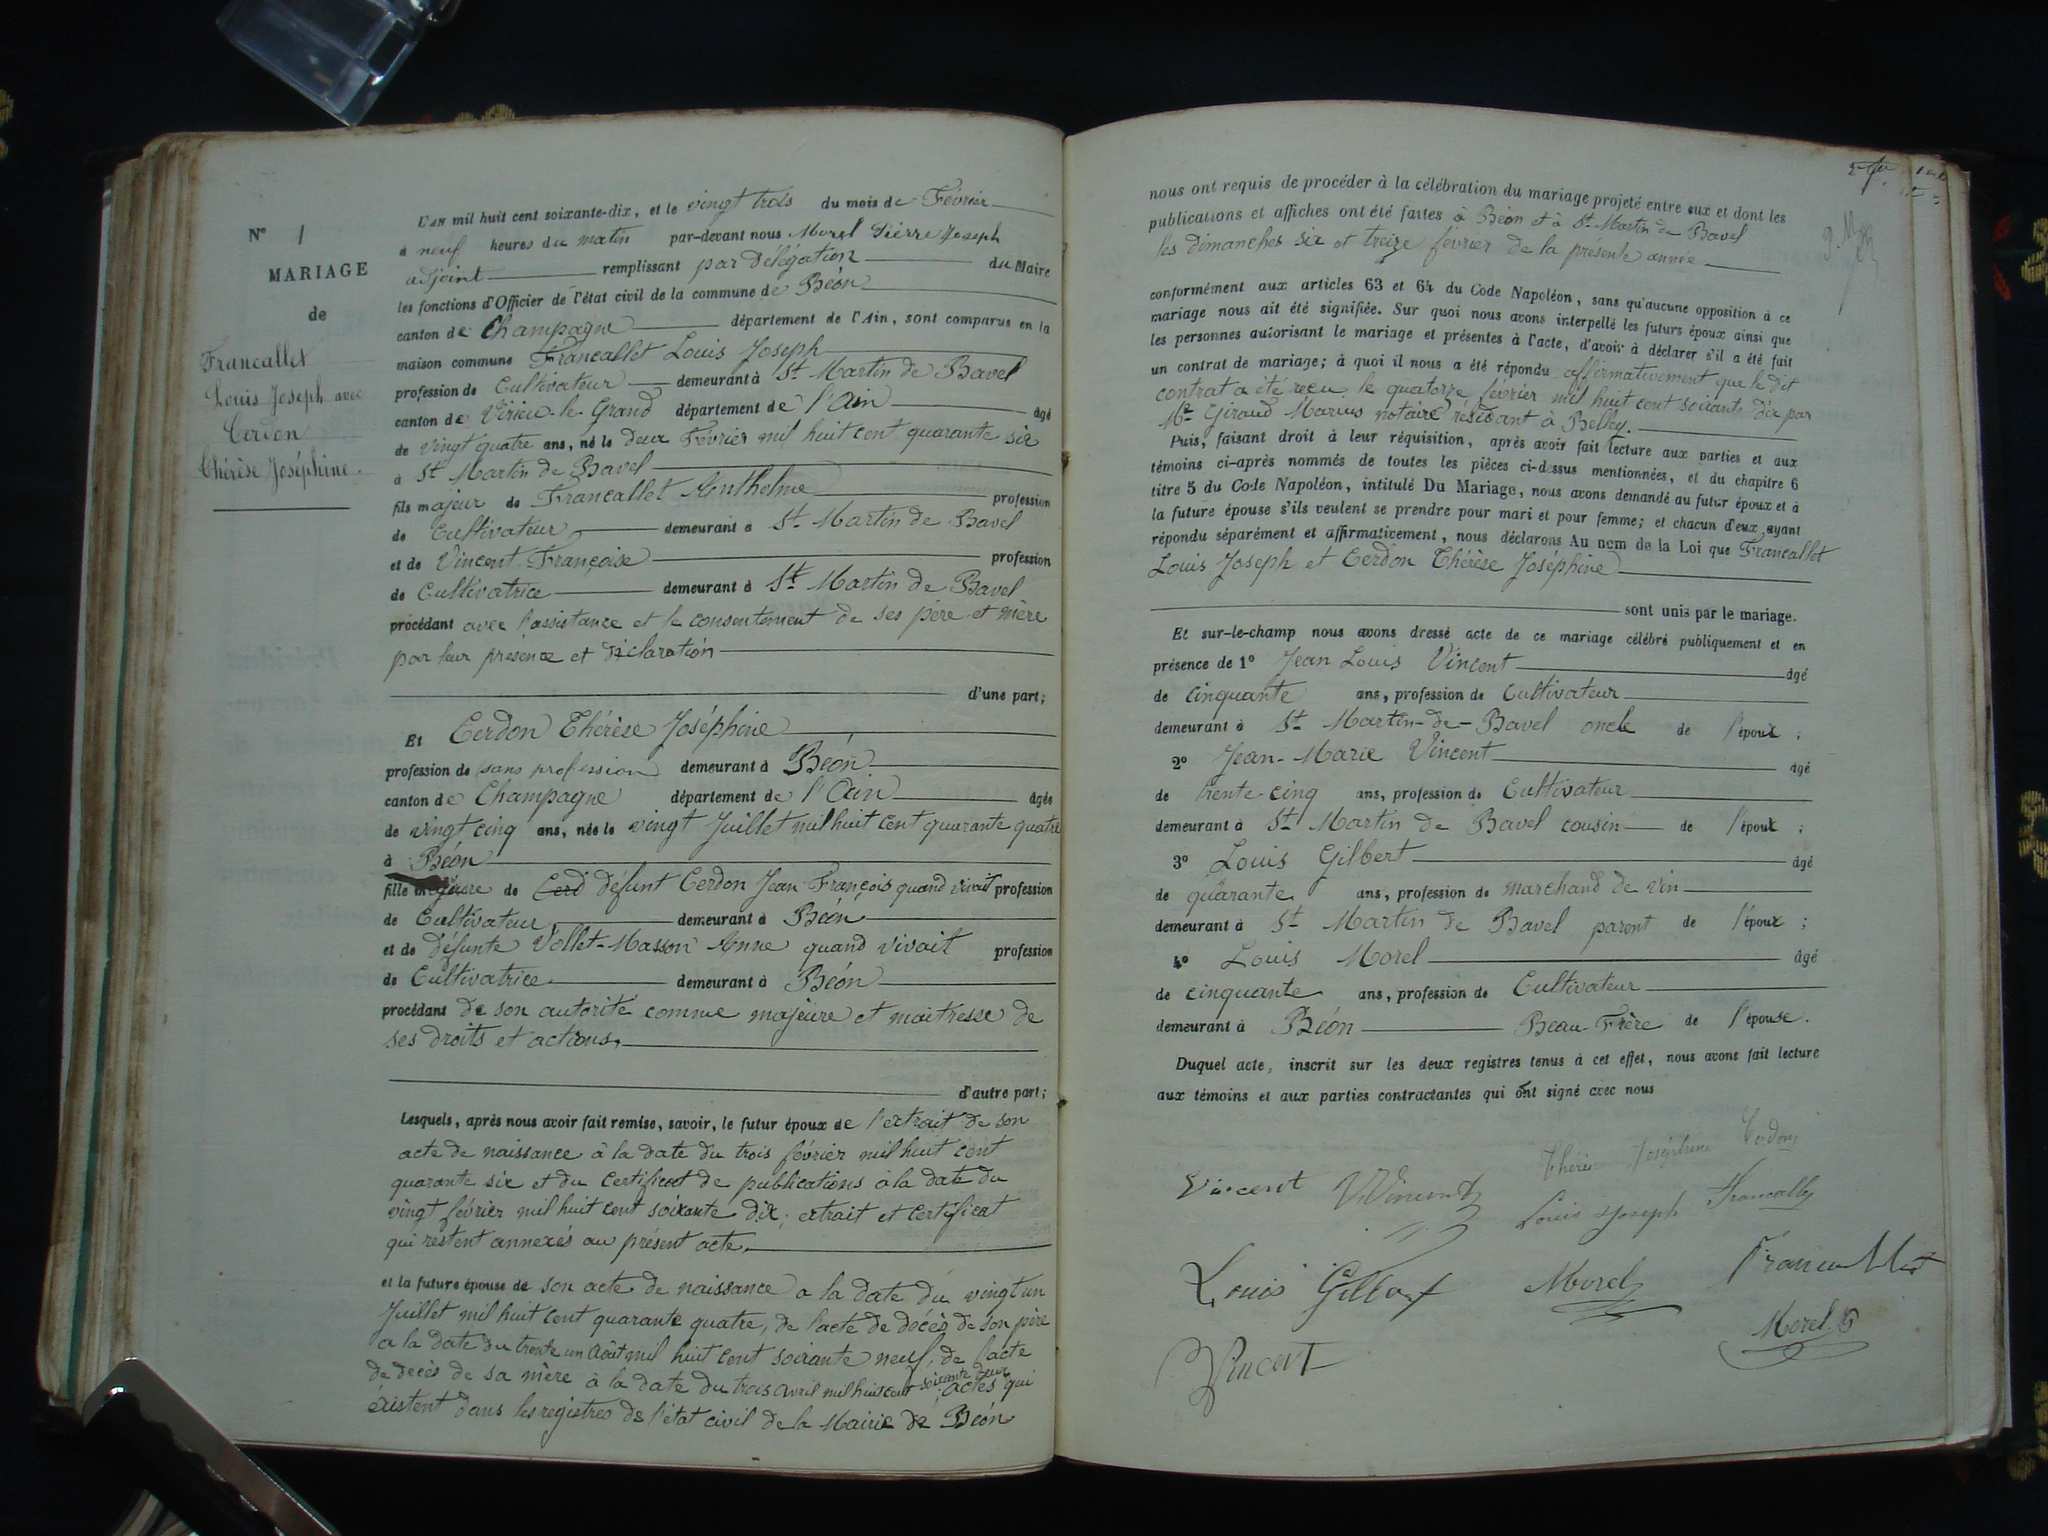 N° 1
MARIAGE
de
Francallet
Louis Joseph avec
Cerdon
Thérèse Joséphine.
L'AN mil huit cent soixante-dix, et le vingt trois du mois de Février
à neuf heures du matin par-devant nous Morel Pierre Joseph
adjoint remplissant par délégation du Maire
les fonctions d'Officier de l'état civil de la commune de Béon
canton de Champagne département de l'Ain, sont comparus en la
maison commune Francallet Louis Joseph
profession de Cultivateur demeurant à St Martin de Bavel
canton de Virieu-le-Grand département de l'Ain âgé
de vingt quatre ans, né le deux Février mil huit cent quarante six
à St Martin de Bavel
fils majeur de Francallet Anthelme profession
de Cultivateur demeurant à St Martin de Bavel
et de Vincent Françoise profession
de Cultivatrice demeurant à St Martin de Bavel
procédant avec l'assistance et le consentement de ses père et mère
par leur présence et déclaration
d'une part;
Et Cerdon Thérèse Joséphine
profession de sans profession demeurant à Béon
canton de Champagne département de l'Ain âgée
de vingt cinq ans, née le vingt Juillet mil huit cent quarante quatre
à Béon
fille majeure de Cerd défunt Cerdon Jean François quand vivait profession
de Cultivateur demeurant à Béon
et de défunte Vollet-Masson Anne quand vivait profession
de Cultivatrice demeurant à Béon
procédant de son autorité comme majeure et maitresse de
ses droits et actions.
d'autre part;
Lesquels, après nous avoir fait remise, savoir, le futur époux de l'extrait de son
acte de naissance à la date du trois février mil huit cent
quarante six et du certificat de publications à la date du
vingt février mil huit cent soixante dix; extrait et certificat
qui restent annexés au présent acte.
et la future épouse de son acte de naissance a la date du vingt un
Juillet mil huit cent quarante quatre, de l'acte de décès de son père
a la date du trente un Août mil huit cent soixante neuf, de l'acte
de decès de sa mère à la date du trois avril mil huit cent soixante deux actes qui
éxistent dans les registres de l'état civil de la Mairie de Béon
nous ont requis de procéder à la célébration du mariage projeté entre eux et dont les
publications et affiches ont été faites à Béon et à St Martin de Bavel
les dimanches six et treize février de la présente année
conformément aux articles 63 et 64 du Code Napoléon, sans qu'aucune opposition à ce
mariage nous ait été signifiée. Sur quoi nous avons interpellé les futurs époux ainsi que
les personnes autorisant le mariage et présentes à l'acte, d'avoir à déclarer s'il a été fait
un contrat de mariage; à quoi il nous a été répondu affirmativement que le dit
contrat a été reçu le quatorze février mil huit cent soixante dix par
Me Giraud Marius notaire résidant à Belley.
Puis, faisant droit à leur réquisition, après avoir fait lecture aux parties et aux
témoins ci-après nommés de toutes les pièces ci-dessus mentionnées, et du chapitre 6
titre 5 du Code Napoléon, intitulé Du Mariage, nous avons demandé au futur époux et à
la future épouse s'ils veulent se prendre pour mari et pour femme; et chacun d'eux ayant
répondu séparément et affirmativement, nous déclarons Au nom de la Loi que Francallet
Louis Joseph et Cerdon Thérèse Joséphine
sont unis par le mariage.
Et sur-le-champ nous avons dressé acte de ce mariage célébré publiquement et en
présence de 1° Jean Louis Vincent âgé
de cinquante ans, profession de Cultivateur
demeurant à St Martin-de-Bavel oncle de l'époux;
2° Jean-Marie Vincent âgé
de trente-cinq ans, profession de Cultivateur
demeurant à St Martin de Bavel cousin de l'époux;
3° Louis Gilbert âgé
de quarante ans, profession de marchand de vin
demeurant à St Martin de Bavel parent de l'époux;
4° Louis Morel âgé
de cinquante ans, profession de Cultivateur
demeurant à Béon Beau-Frère de l'épouse.
Duquel acte, inscrit sur les deux registres tenus à cet effet, nous avons fait lecture
aux témoins et aux parties contractantes qui ont signé avec nous
Thérèse Joséphine Cerdon
Vincent Vincent Louis Joseph Francallet
Louis Gilbert Morel Francallet
Vincent Morel